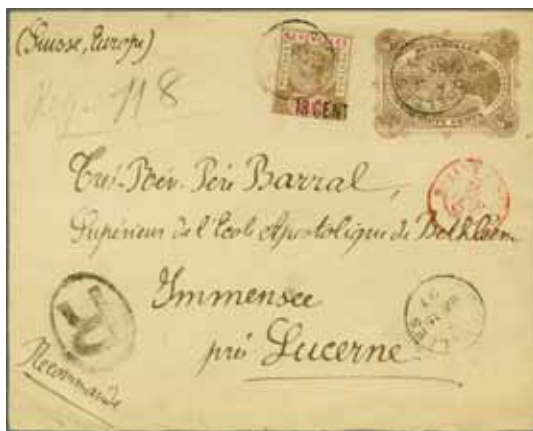 (Suisse, Europe)
SEYCHELLES
Reg. 118
18 CENT
Très-Rév. Père Barral,
Supérieur de l'Ecole Apostolique de Bethléem
Immensee
près Lucerne
R
Recommandé